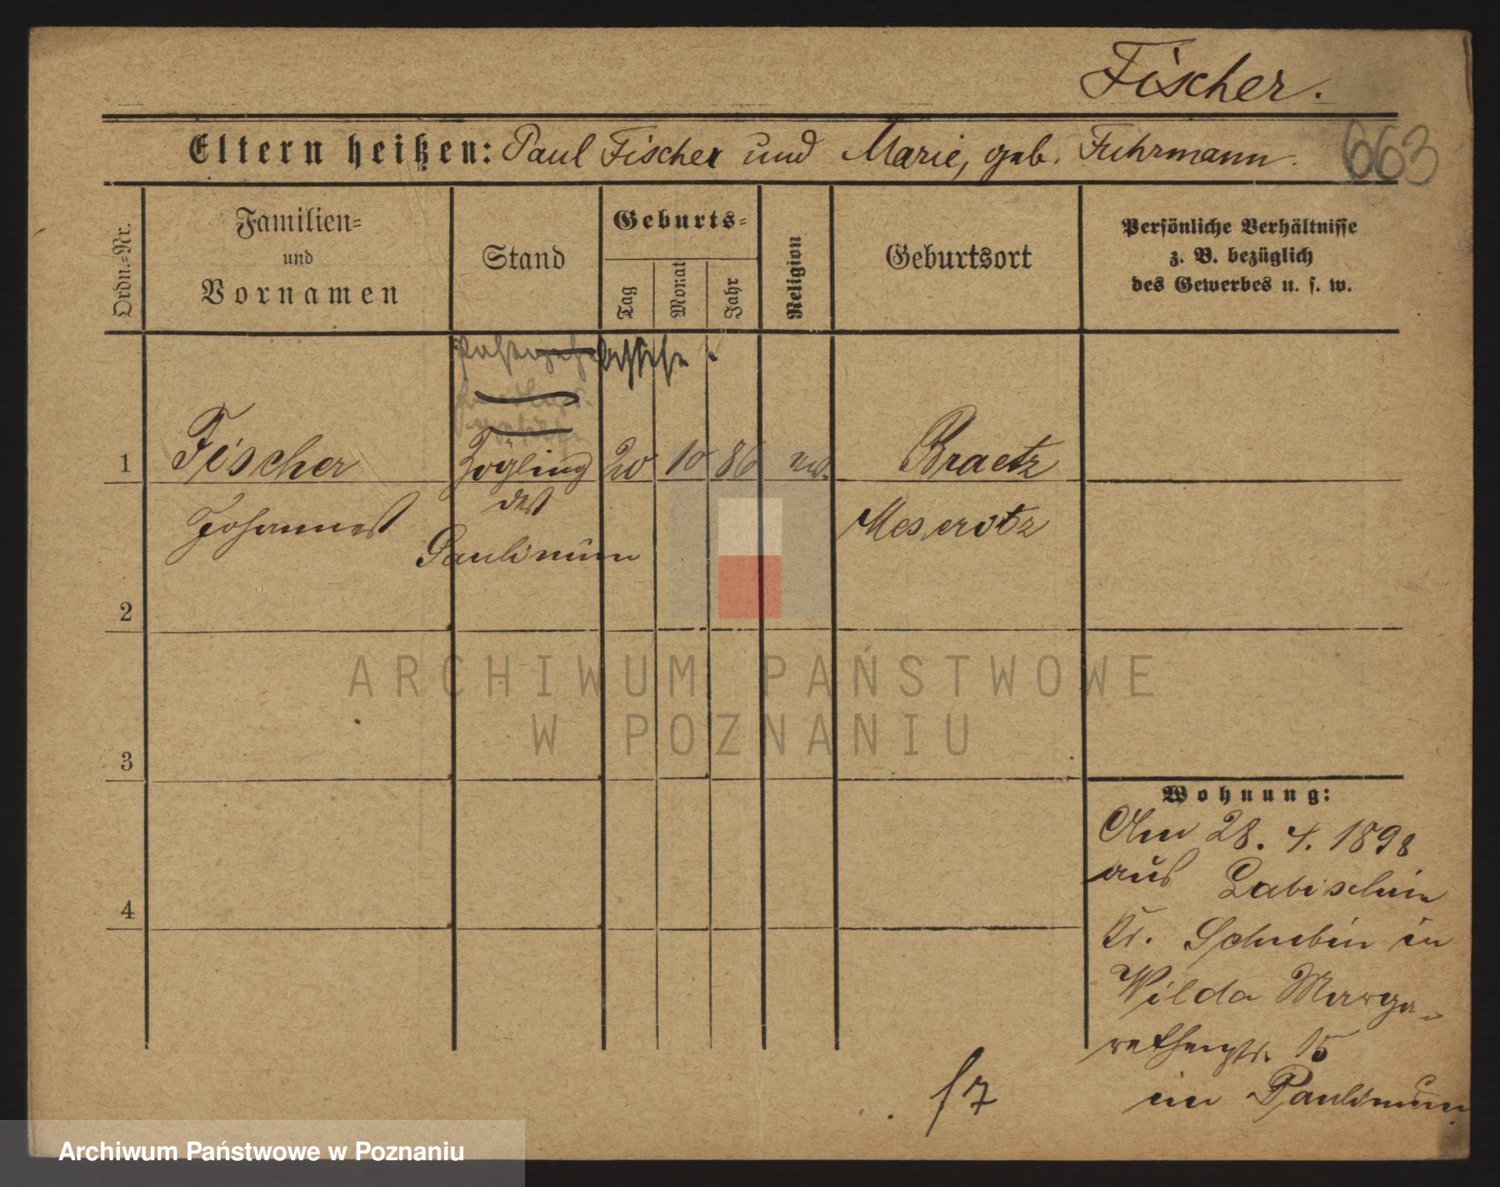 Fischer.
Eltern heißen: Paul Fischer und Marie, geb. Fuhrmann.
663
Ordn.-Nr.
Familien-
und
Vornamen
Stand
Geburts-
Tag
Monat
Jahr
Religion
Geburtsort
Persönliche Verhältnisse
z. B. bezüglich
des Gewerbes u. s. w.
1
Fischer
Zögling
20
10
86
Braetz
Johannes
des
Meseritz
Paulinum
2
ARCHIWUM PAŃSTWOWE
W POZNANIU
3
Wohnung:
Am 28. 4. 1898
aus Labischin
4
Kr. Schubin in
Wilda Marga-
rethenstr. 15
im Paulinum
f7
Archiwum Państwowe w Poznaniu